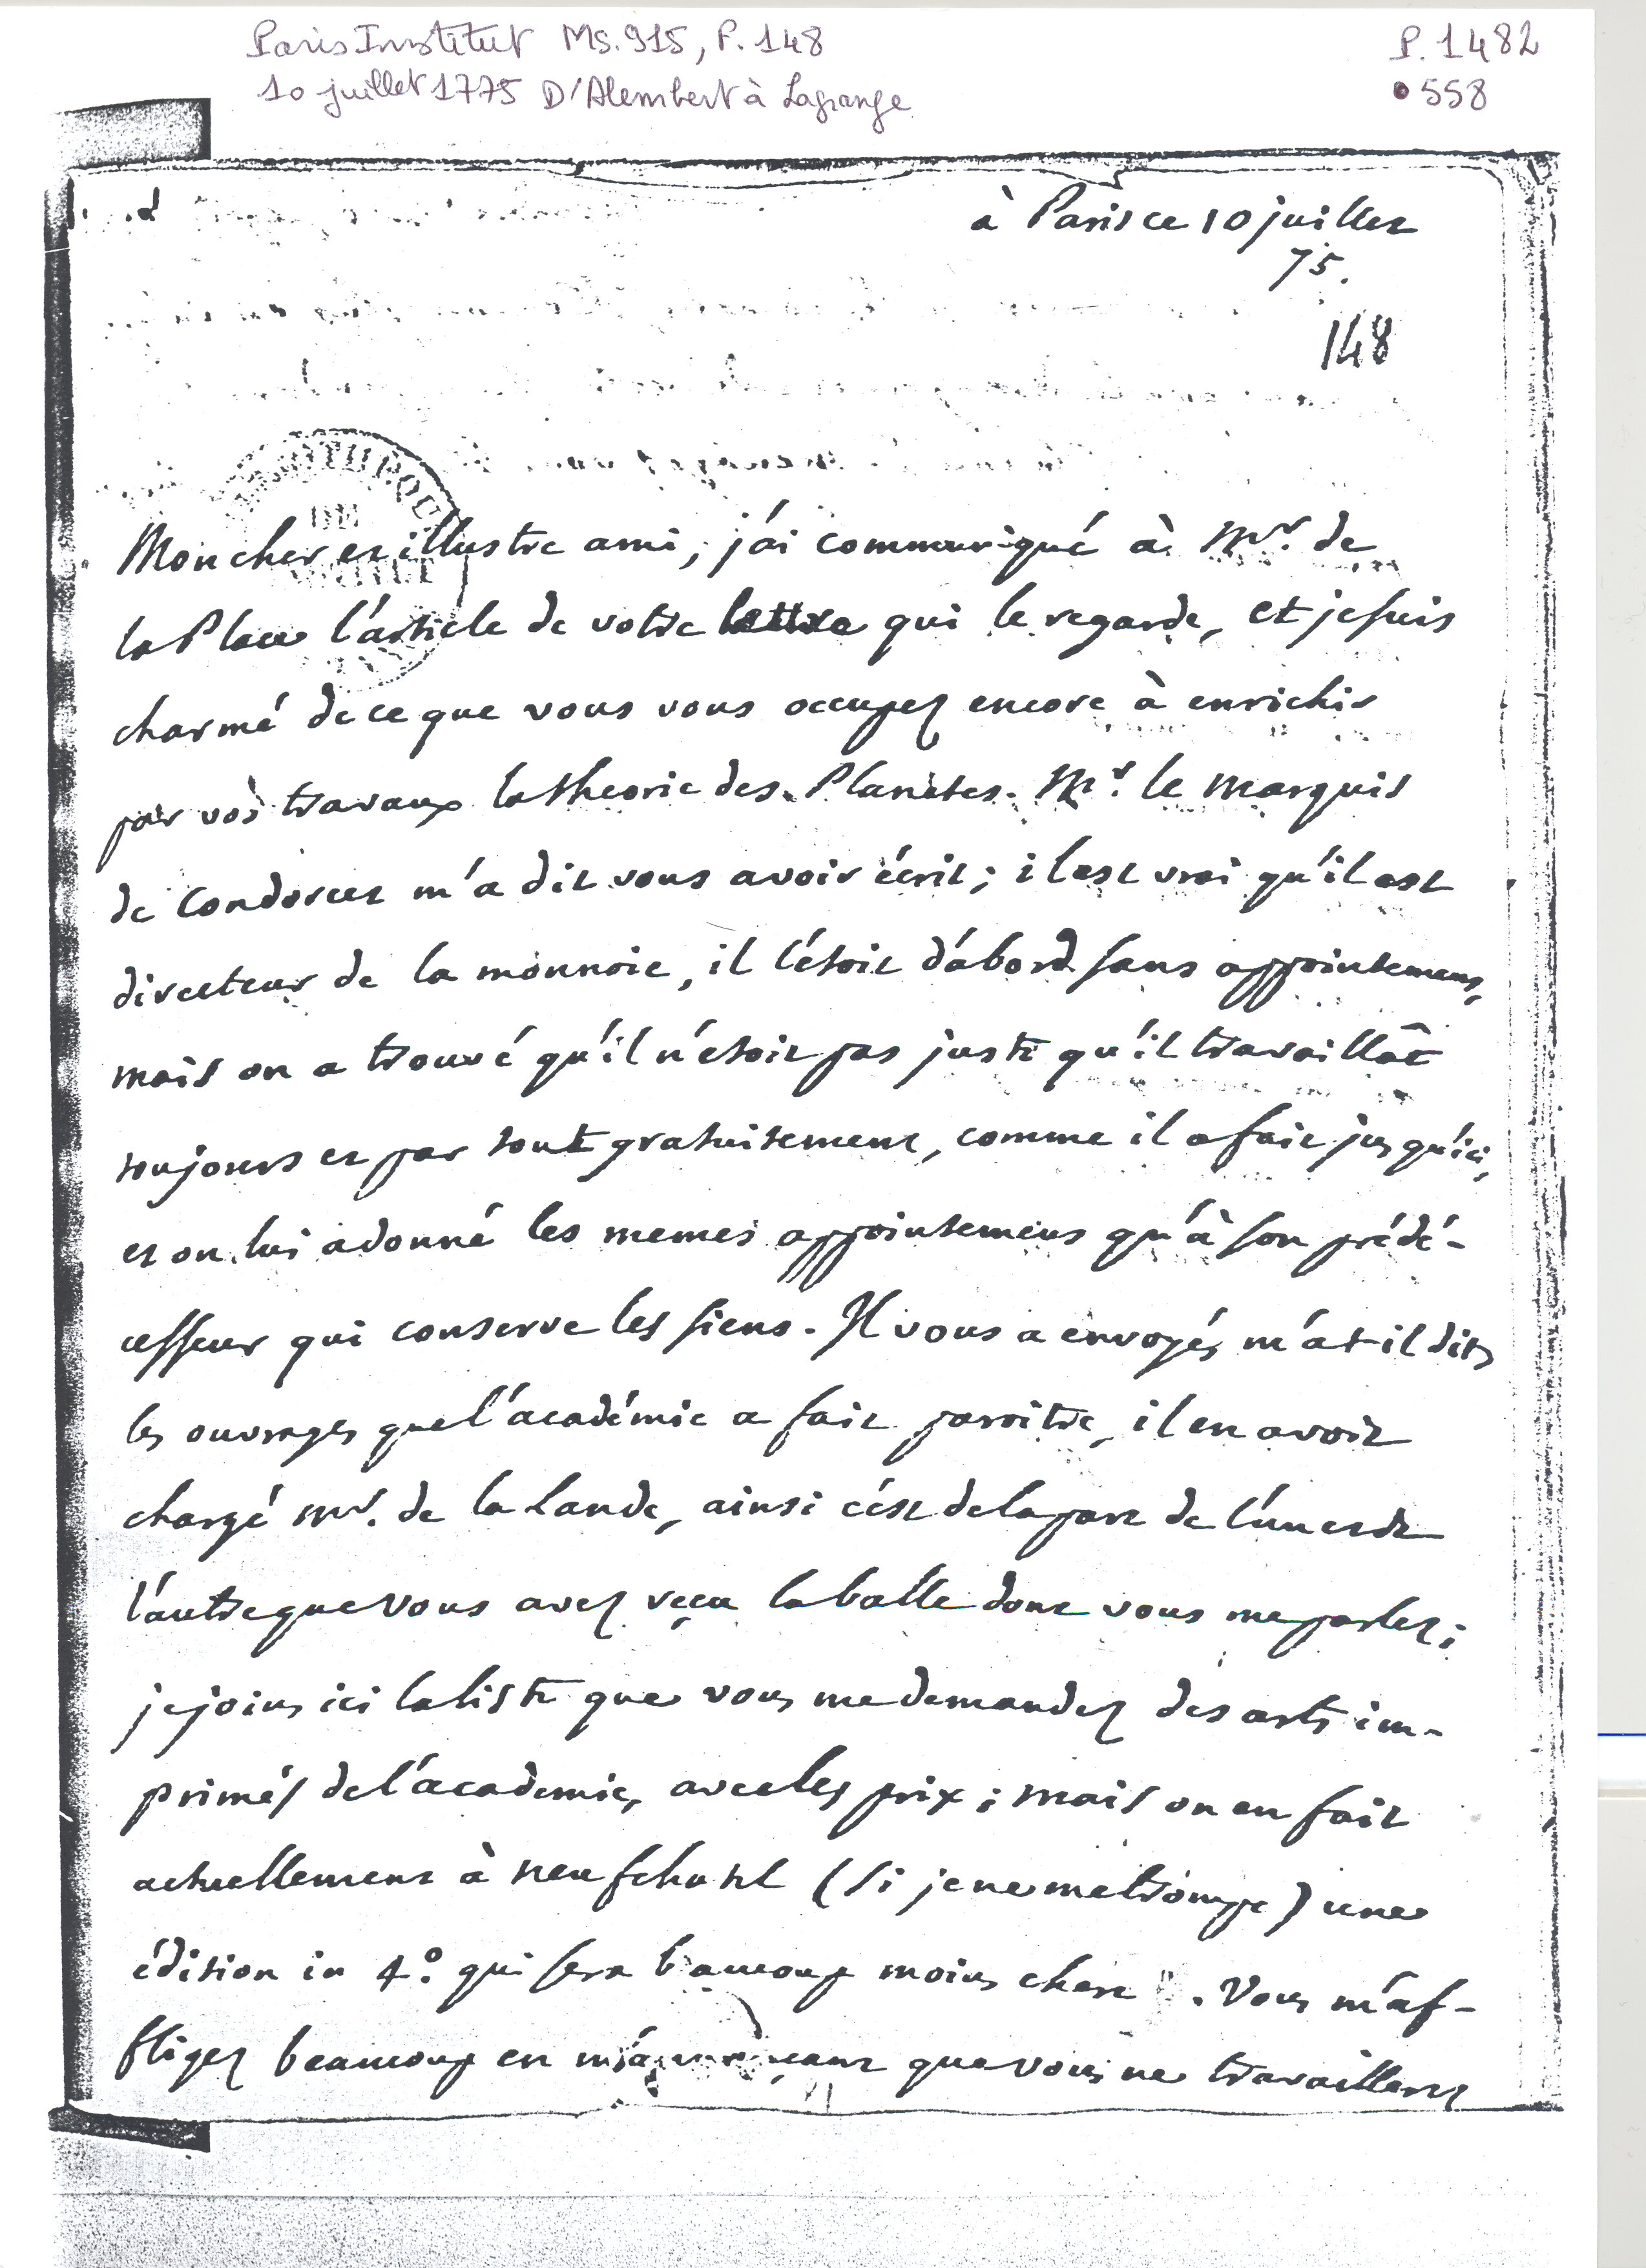 Paris Institut Ms. 915, P. 148
P. 1482
10 juillet 1775 D'Alembert à Lagrange
558
à Paris ce 10 juillet
75.
148
Mon cher et illustre ami, j'ai communiqué à Mr. de
la Place l'article de votre lettre qui le regarde, et je suis
charmé de ce que vous vous occupez encore à enrichir
par vos travaux la theorie des Planetes. Mr. le Marquis
de Condorcet m'a dit vous avoir écrit; il est vrai qu'il est
directeur de la monnoie, il l'étoit d'abord sans appointemens,
mais on a trouvé qu'il n'étoit pas juste qu'il travaillât
toujours et par tout gratuitement, comme il a fait jusqu'ici,
et on lui a donné les memes appointemens qu'à son prédé-
cesseur qui conserve les siens. Il vous a envoyé, m'a t-il dit,
les ouvrages que l'académie a fait paroitre, il en avoit
chargé mr. de la Lande, ainsi c'est de la part de l'un et de
l'autre que vous avez reçu la balle dont vous me parlez;
je joins ici la liste que vous me demandez des arts im-
primés de l'academie, avec les prix; mais on en fait
actuellement à neufchatel (si je ne me trompe) une
édition in 4°. qui sera beaucoup moins chere. Vous m'af-
fligez beaucoup en m'annonçant que vous ne travaillerez